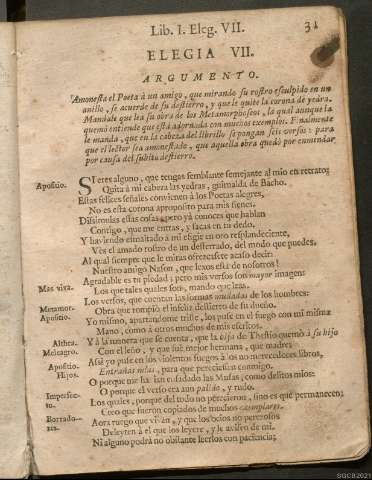 Lib. I. Eleg. VII. 31
ELEGIA VII.
ARGUMENTO.
Amonesta el Poeta à un amigo, que mirando su rostro esculpido en un
anillo, se acuerde de su destierro, y que le quite la corona de yedra.
Mandale que lea su obra de los Metamorphoseos, la qual aunque la
quemò entiende que està adornada con muchos exemplos. Finalmente
le manda, que en la cabeza del librillo se pongan seis versos: para
que el lector sea amonestado, que aquella obra quedò por enmendar
por causa del subito destierro.
Apostio. SI eres alguno, que tengas semblante semejante al mio en retrato;
Quita à mi cabeza las yedras, guirnalda de Bacho.
Estas felices señales convienen à los Poetas alegres,
No es esta corona aproposito para mis sienes.
Dissimulas essas cosas, pero yà conoces que hablan
Contigo, que me entras, y sacas en tu dedo.
Y haviendo esmaltado à mi efigie en oro resplandeciente,
Vès el amado rostro de un desterrado, del modo que puedes.
Al qual siempre que le miras ofrezcasete acaso decir:
Nuestro amigo Nason, que lexos està de nosotros!
Agradable es tu piedad; pero mis versos son mayor imagen
Mas viva. Los que tales quales son, mando que leas.
Metamor. Los versos, que cuentan las formas mudadas de los hombres:
Apostio. Obra que rompiò el infeliz destierro de su dueño.
Yo mismo, apartandome triste, los puse en el fuego con mi misma
Mano, como à otros muchos de mis escritos.
Althea. Y à la manera que se cuenta, que la hija de Thestio quemò à su hijo
Meleagro. Con el leño, y que fuè mejor hermana, que madre:
Apostio. Assi yo puse en los violentos fuegos à los no merecedores libros,
Hijos. Entrañas mias, para que pereciessen conmigo.
O porque me havian enfadado las Musas, como delitos mios:
Imperfecto. O porque el verso era aun palido, y rudo.
Los quales, porque del todo no perecieron, sino es que permanecen;
Creo que fueron copiados de muchos exemplares.
Borradores. Aora ruego que vivan, y que los ocios no perezosos
Deleyten à el que los leyere, y le avisen de mi.
Ni alguno podrà no obstante leerlos con paciencia;
SGCB2021